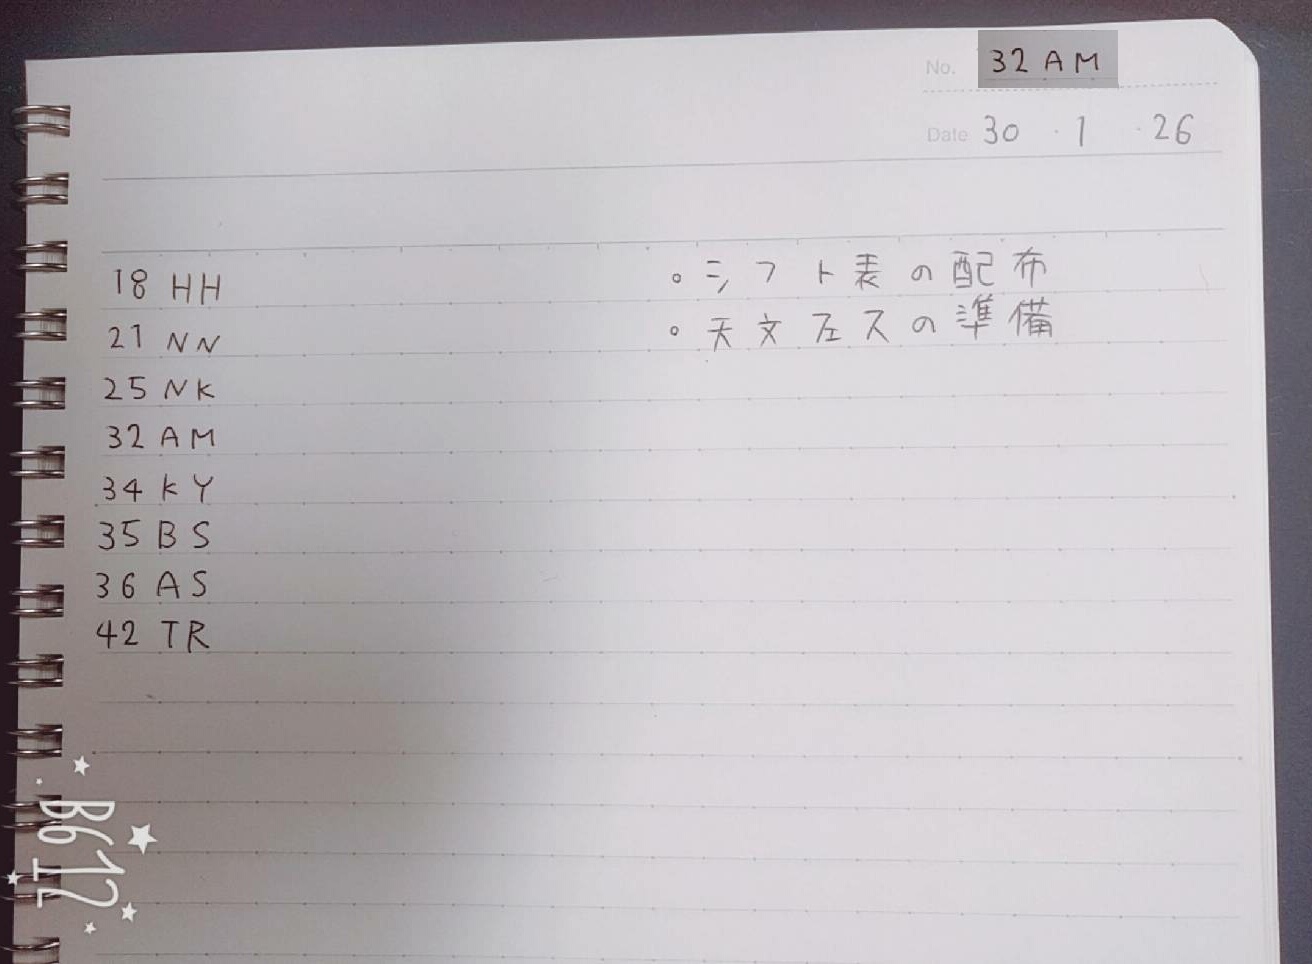 No. 32 AM
Date 30 ・ 1 ・ 26
18 HH
21 NN
25 NK
32 AM
34 KY
35 BS
36 AS
42 TR
。シフト表の配布
。天文フェスの準備
B612